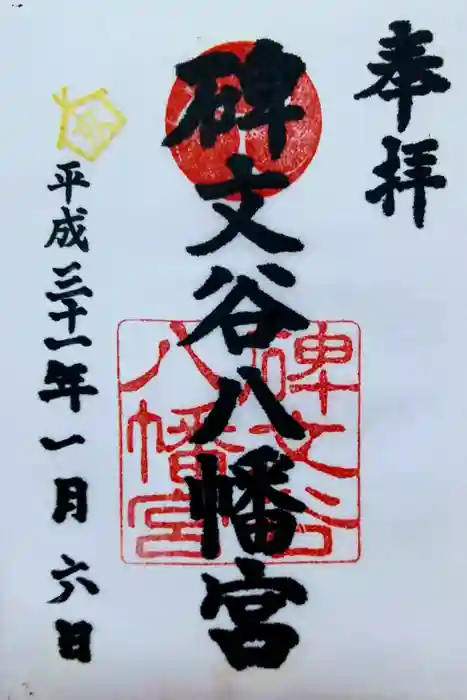 奉拝
碑文谷八幡宮
碑文谷
八幡宮
平成三十一年一月六日